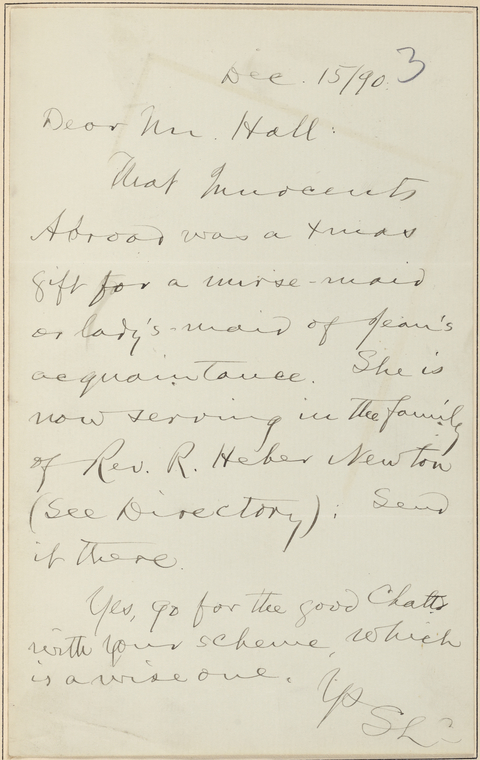 Dec. 15/90. 3
Dear Mr. Hall:
That Innocents
Abroad was a Xmas
gift for a nurse-maid
or lady's-maid of Jean's
acquaintance. She is
now serving in the family
of Rev. R. Heber Newton
(See Directory): Send
it there.
Yes, go for the good Chatto
with your scheme, which
is a wise one.
Ys
SLC